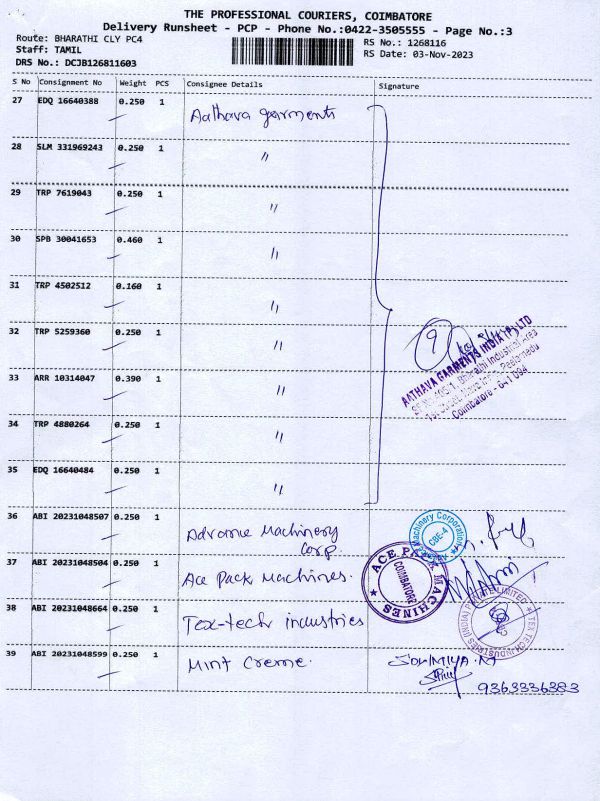 THE PROFESSIONAL COURIERS, COIMBATORE
Delivery Runsheet - PCP - Phone No.:0422-3505555 - Page No.:3
Route: BHARATHI CLY PC4
RS No.: 1268116
Staff: TAMIL
RS Date: 03-Nov-2023
DRS No.: DCJB126811603
S No Consignment No Weight PCS Consignee Details Signature
27 EDQ 16640388 0.250 1 Aathava garments
28 SLM 331969243 0.250 1 "
29 TRP 7619043 0.250 1 "
30 SPB 30041653 0.460 1 "
31 TRP 4502512 0.160 1 "
32 TRP 5259360 0.250 1 "
9
AATHAVA GARMENTS INDIA (P) LTD
Bharathi Industrial Area
Peelamedu
Coimbatore - 641 004
33 ARR 10314047 0.390 1 "
34 TRP 4880264 0.250 1 "
35 EDQ 16640484 0.250 1 "
36 ABI 20231048507 0.250 1 Advance Machinery
Corp.
Machinery Corporation
CBE-4
37 ABI 20231048504 0.250 1 Ace Pack Machines.
ACE PACK MACHINES
COIMBATORE
38 ABI 20231048664 0.250 1 Tex-tech industries
TEX TECH INDUSTRIES (INDIA) PRIVATE LIMITED
39 ABI 20231048599 0.250 1 Mint Creme. SOWMIYA.M
9363336383